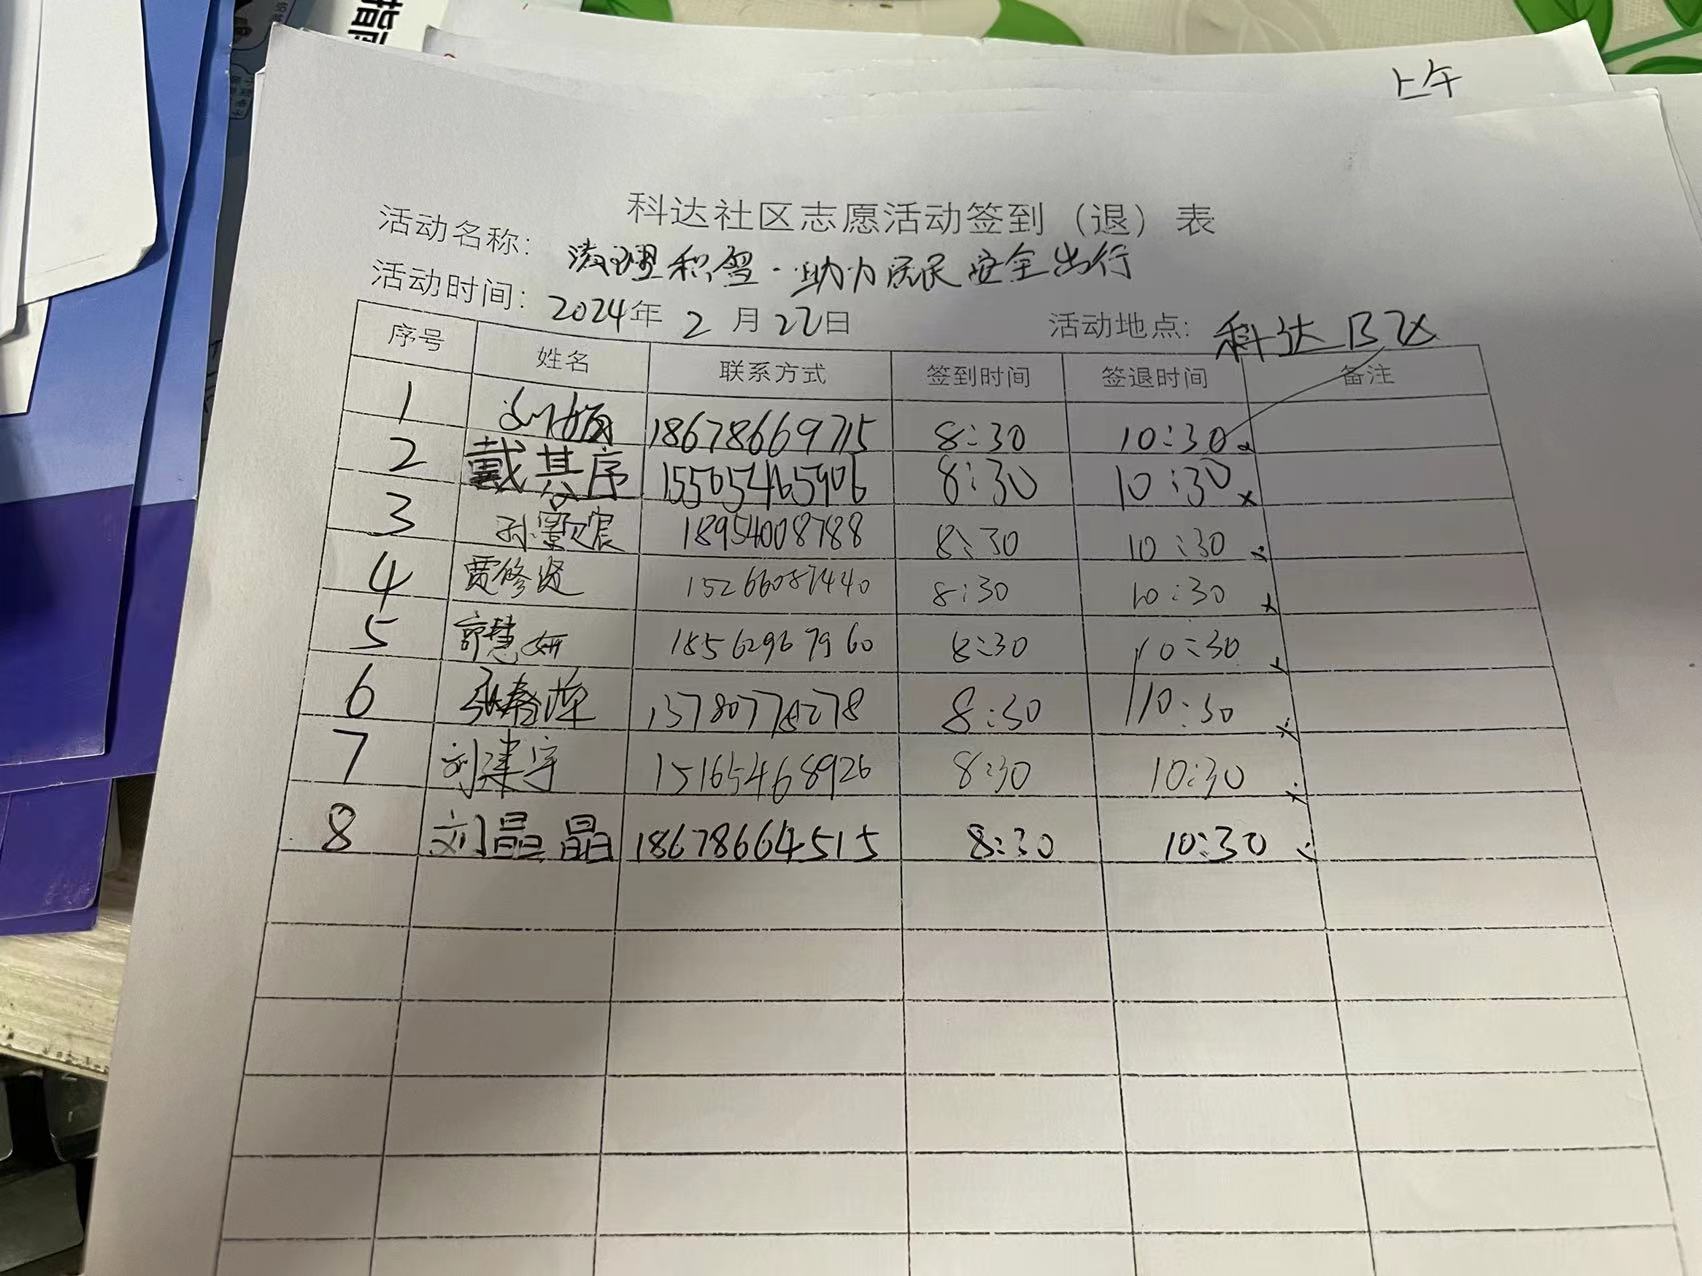 上午
科达社区志愿活动签到（退）表
活动名称：清理积雪·助力居民安全出行
活动时间：2024年 2 月 22日 活动地点：科达B区
序号 姓名 联系方式 签到时间 签退时间 备注
1 18678669715 8:30 10:30
2 戴其序 15505465906 8:30 10:30
3 孙 宸 18954008788 8:30 10:30
4 贾修贤 15266087440 8:30 10:30
5 慧妍 18562967960 8:30 10:30
6 张春萍 13780778278 8:30 10:30
7 刘建宇 15165468926 8:30 10:30
8 刘晶晶 18678664515 8:30 10:30